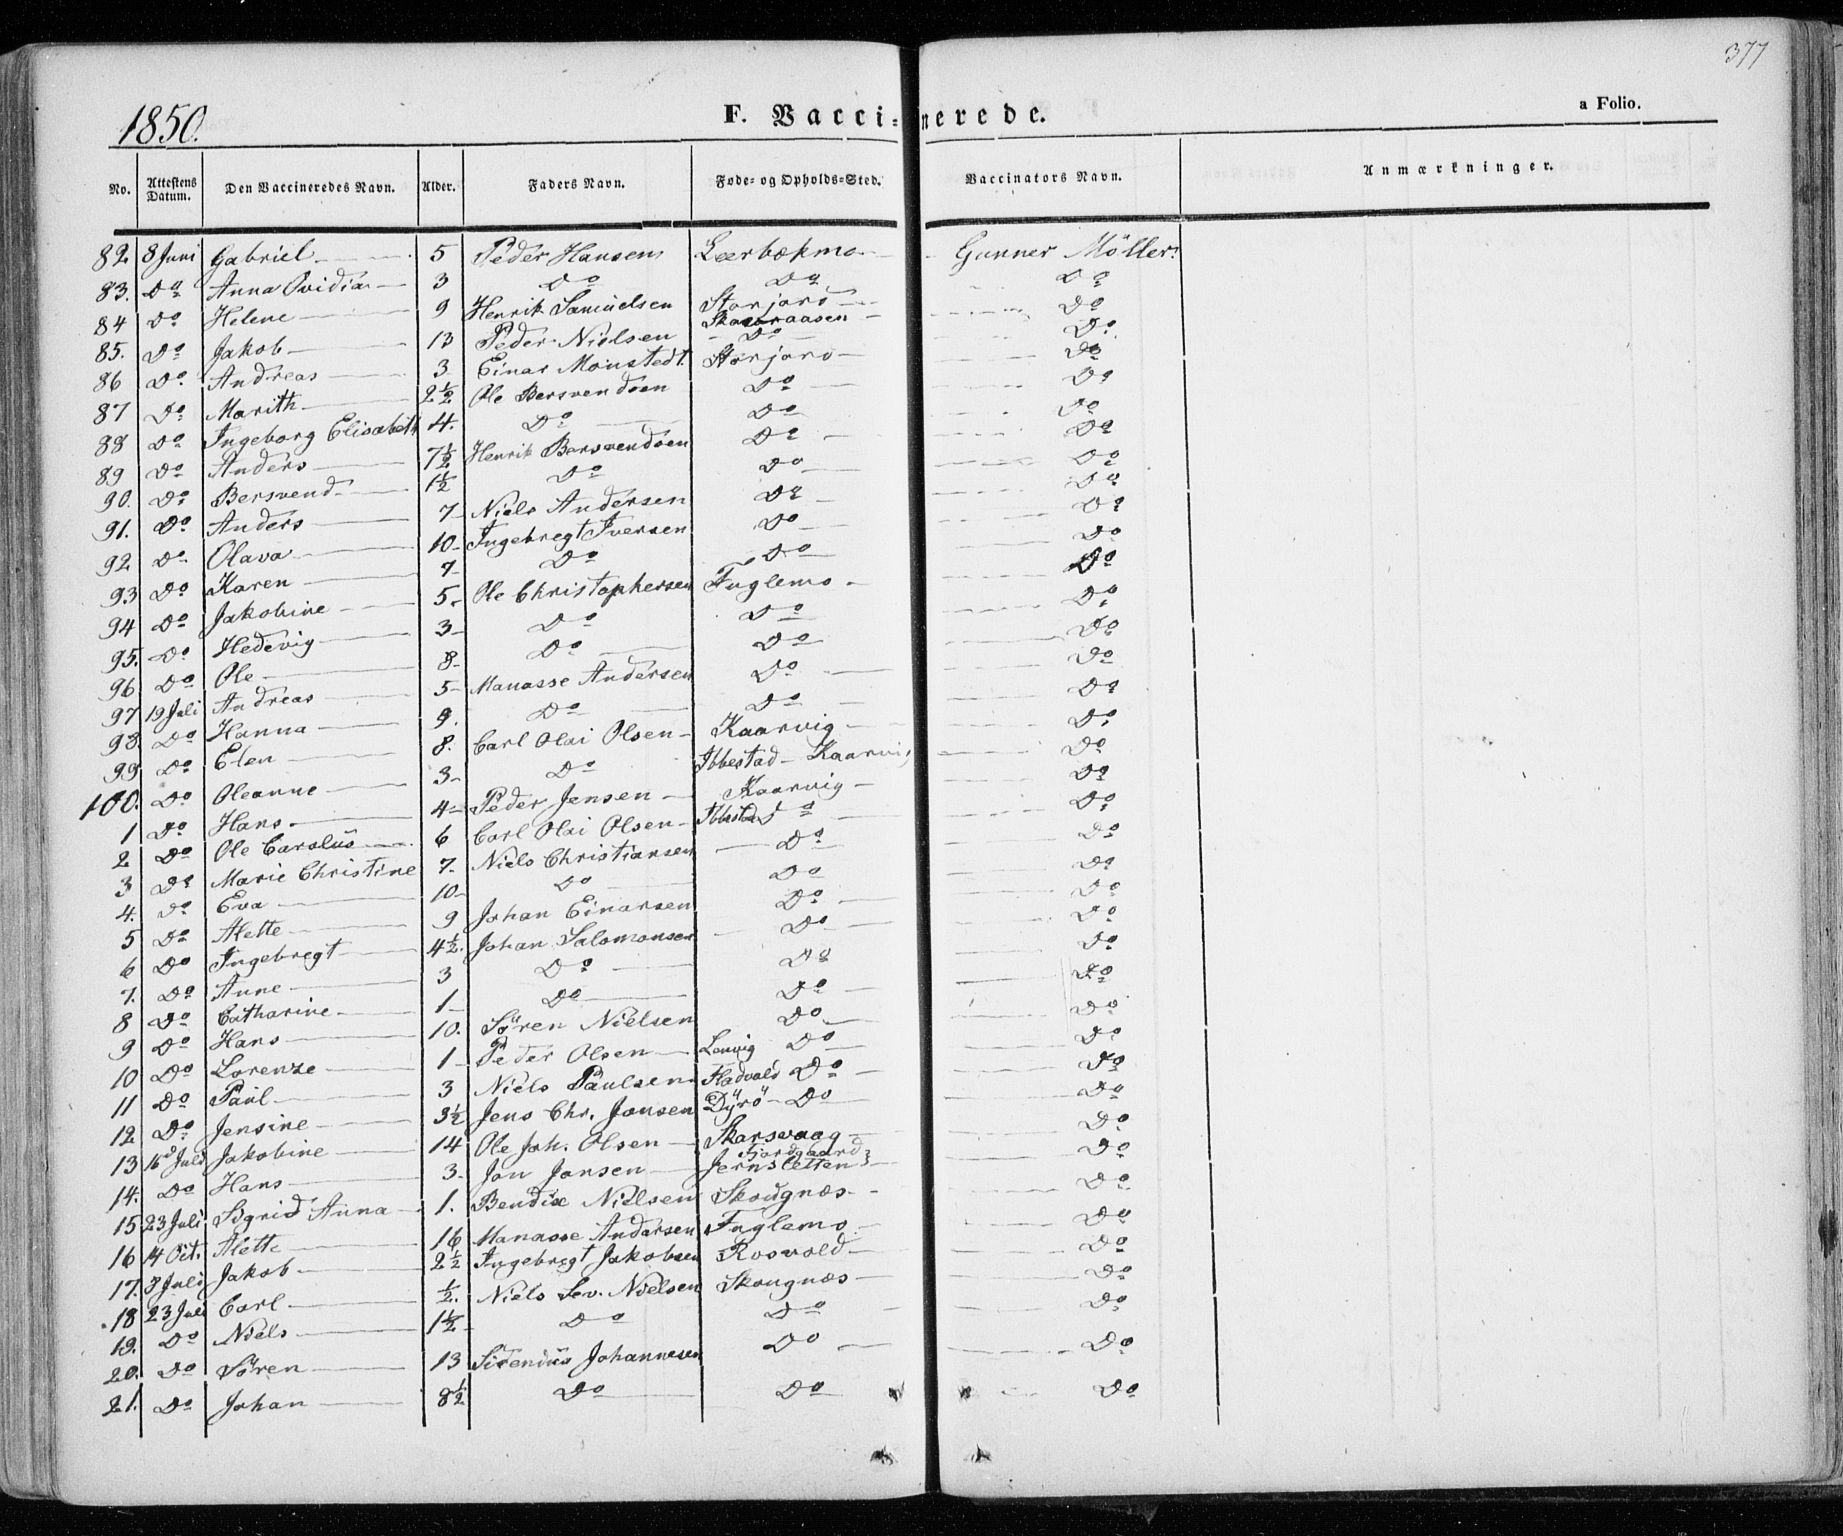 377
1850.
F. Vaccinerede.
a Folio.
No. Attestens Datum. Den Vaccineredes Navn. Alder. Faders Navn. Føde- og Opholds-Sted. Vaccinators Navn. Anmærkninger.
82 8 Juni Gabriel 5 Peder Hansen Leerbækmo Gunner Möller
83. Do Anna Ovidia 3 Do Do Do
84 Do Helene 9 Henrik Samuelsen Storjord Do
85. Do Jakob 13 Peder Nielsen Skavraasen Do Do
86 Do Andreas 3 Einar Monstedt Storjord Do
87 Do Marith 2½ Ole Bersvendsen Do Do
88 Do Ingeborg Elisabeth 4. Do Do Do
89 Do Anders 7½ Henrik Bersvendsen Do Do
90. Do Bersvend 1½ Do Do Do
91. Do Anders 7 Niels Andersen Do Do
92 Do Olava 10 Ingebregt Iversen Do Do
93 Do Karen 7 Do Do Do
94 Do Jakobine 5 Ole Christophersen Fuglemo Do
95. Do Hedevig 3 Do Do Do
96 Do Ole 8 Do Do Do
97 19 Juli Andreas 5 Manasse Andersen Do Do
98 Do Hanna 9. Do Do Do
99 Do Elen 8. Carl Olai Olsen Kaarvig Do
100. Do Oleanne 3 Do Ibbestad Kaarvig Do
1 Do Hans 4 Peder Jensen Kaarvig Do
2 Do Ole Carolus 6 Carl Olai Olsen Ibbestad Do Do
3 Do Marie Christine 7. Niels Christiansen Do Do
4. Do Eva 10 Do Do Do
5 Do Alette 9 Johan Einarsen Do Do
6 Do Ingebregt 4½ Johan Salomonsen Do Do
7. Do Anne 3 Do Do Do
8 Do Catharine 1 Do Do Do
9 Do Hans 10. Sören Nielsen Do Do
10 Do Lorenze 1 Peder Olsen Lonvig Do Do
11 Do Paul 3 Niels Paulsen Fladvold Do Do
12 Do Jensine 3½ Jens Chr. Jensen Dyrö Do Do
13 16d Juli Jakobine 14 Ole Joh. Olsen Skarsvaag Do
14. Do Hans 3. Jon Jonsen Fjordgaard Jernsletten Do
15 23 Juli Sigrid Anna 1. Bendix Nielsen Skougnæs Do
16 14 Oct. Alette 16 Manasse Andersen Fuglemo Do
17. 8 Juli Jakob 2½ Ingebregt Jakobsen Rosvold Do
18 23 Juli Carl ½. Niels Sev. Nielsen Skougnæs Do
19. Do Niels 1½ Do Do Do
20. Do Sören 13 Sirenius Johannesen Do Do
21. Do Johan 8½ Do Do Do